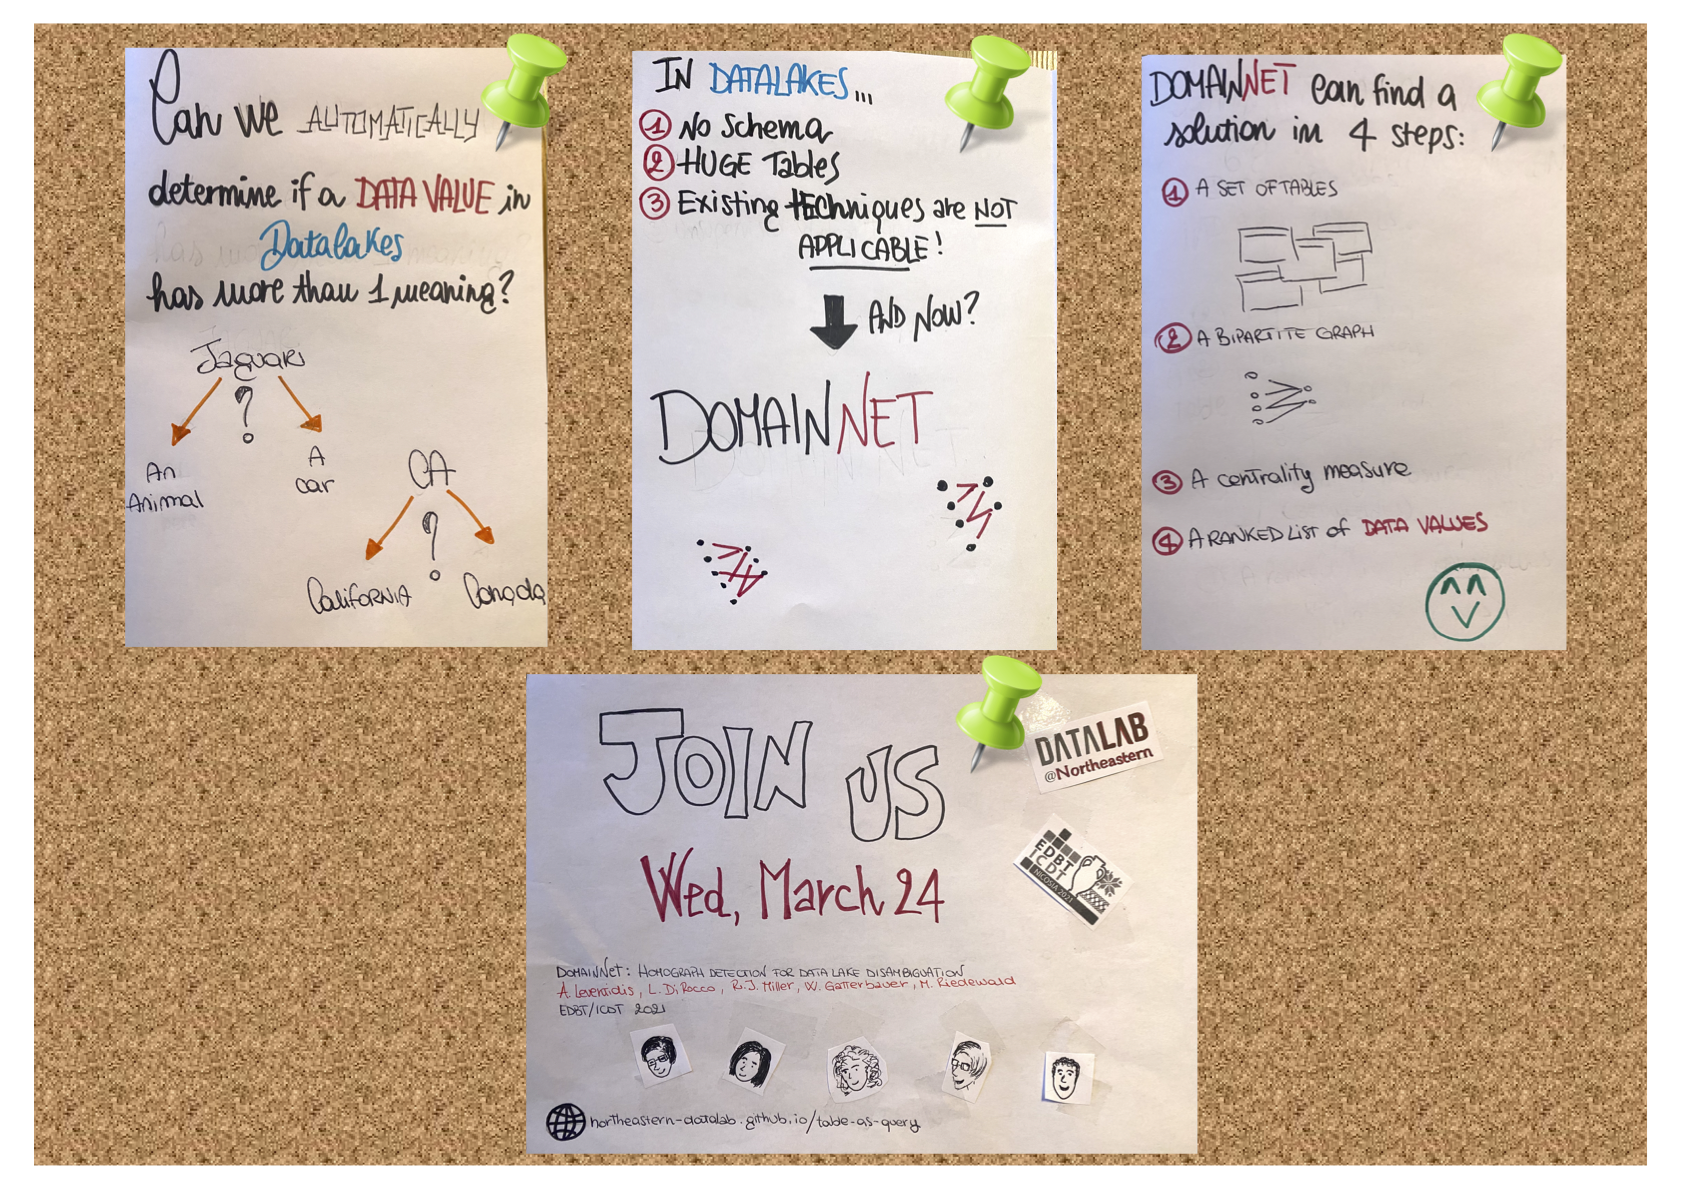 Can we AUTOMATICALLY
determine if a DATA VALUE in
Datalakes
has more than 1 meaning?
Jaguar
?
An
Animal
A
car
CA
?
California
Canada
IN DATALAKES...
1 No Schema
2 HUGE Tables
3 Existing TEChniques are NOT
APPLICABLE!
AND NOW?
DOMAINNET
DOMAINNET can find a
solution in 4 steps:
1 A SET OF TABLES
2 A BIPARTITE GRAPH
3 A centrality measure
4 A RANKED LIST of DATA VALUES
JOIN US
DATALAB
@Northeastern
EDBT
ICDT
NICOSIA 2021
Wed, March 24
DOMAINNet: HOMOGRAPH DETECTION FOR DATA LAKE DISAMBIGUATION
A. Leventidis, L. Di Rocco, R.J. Miller, W. Gatterbauer, M. Riedewald
EDBT/ICDT 2021
northeastern-datalab.github.io/table-as-query